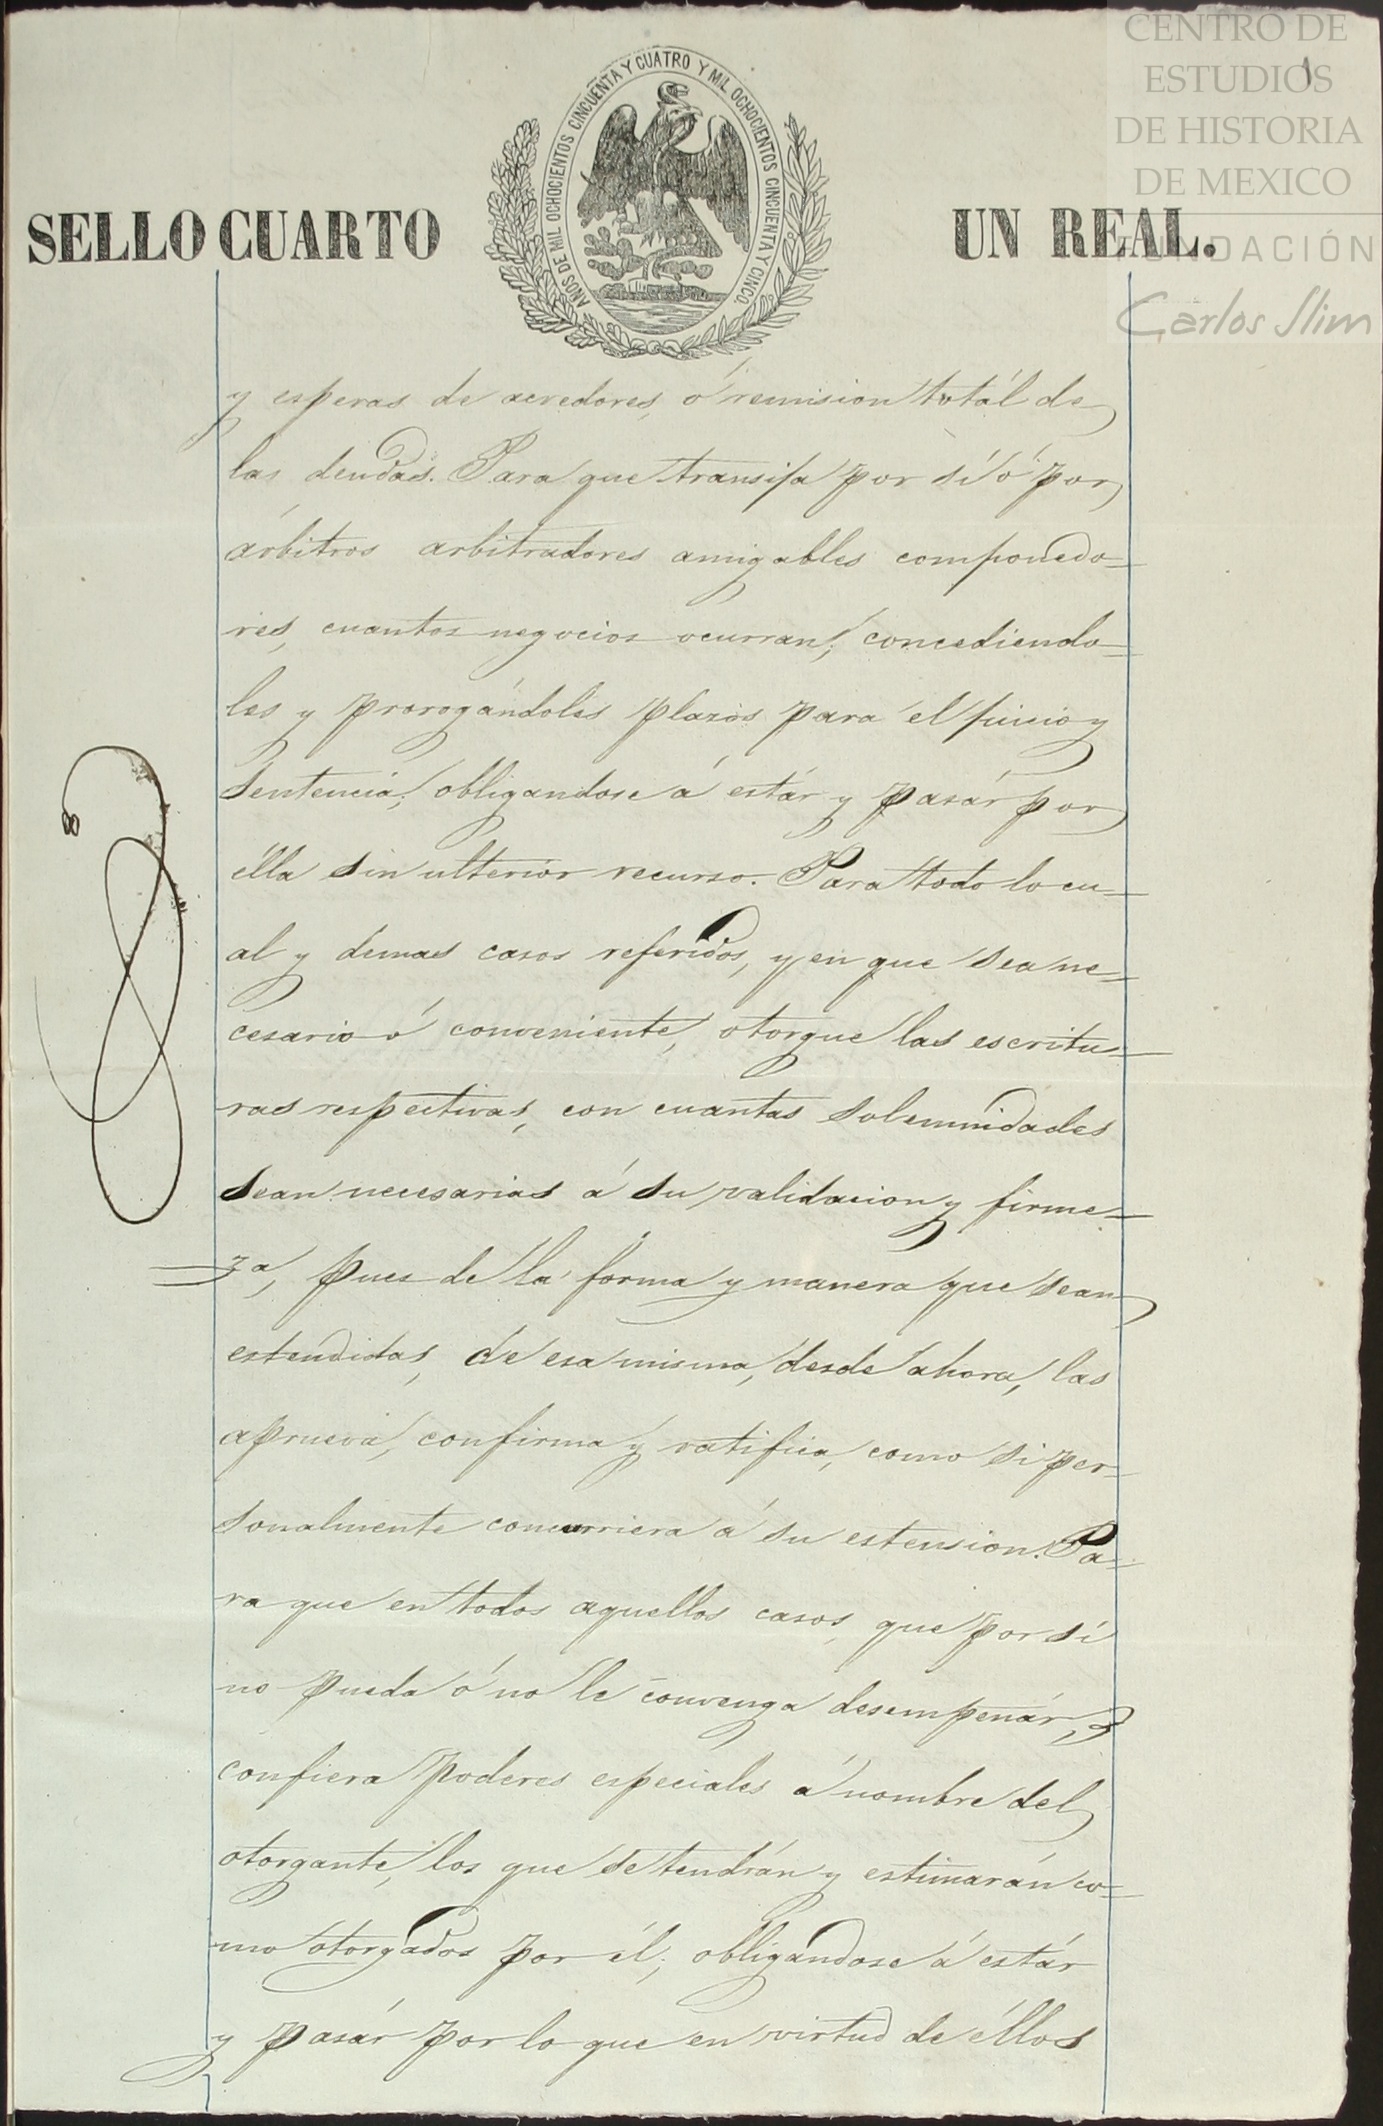 CENTRO DE
ESTUDIOS
DE HISTORIA
DE MEXICO
FUNDACIÓN
Carlos Slim
AÑOS DE MIL OCHOCIENTOS CINCUENTA Y CUATRO Y MIL OCHOCIENTOS CINCUENTA Y CINCO.
SELLO CUARTO UN REAL.
y esperas de acredores, ó remision totál de
las deudas. Para que transija por sí ó por
árbitros arbitradores amigables componedo=
res, cuantos negocios ocurran; concediendo=
les y prorogándoles plazos para el juicio y
sentencia; obligandose á estár y pasár por
élla sin ulterior recurso. Para todo lo cu=
al y demas casos referidos, y en que sea ne=
cesario ó conveniente, otorgue las escritu=
ras respectivas, con cuantas solemnidades
sean necesarias á su validacion y firme=
=za, pues de la forma y manera que sean
estendidas, de esa misma, desde ahora, las
aprueva, confirma y ratifica, como si per=
sonalmente concurriera á su estension. Pa=
ra que en todos aquellos casos, que por sí
no pueda ó no le convenga desempeñár,
confiera poderes especiales á nombre del
otorgante, los que se tendrán y estimarán co=
mo otorgados por él; obligandose á estár
y pasár por lo que en virtud de éllos